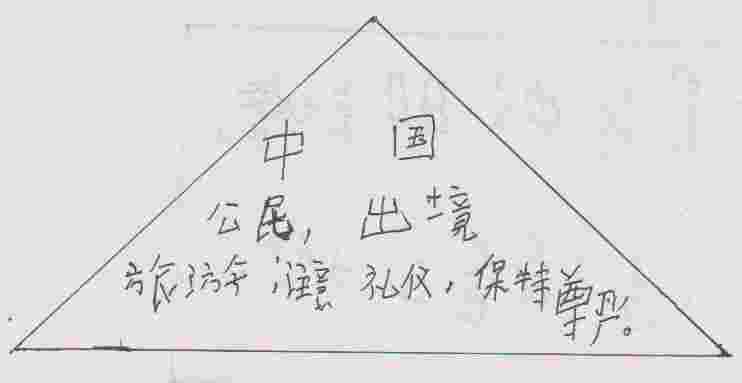 中 国
公民, 出境
旅游 注意 礼仪, 保持尊严。